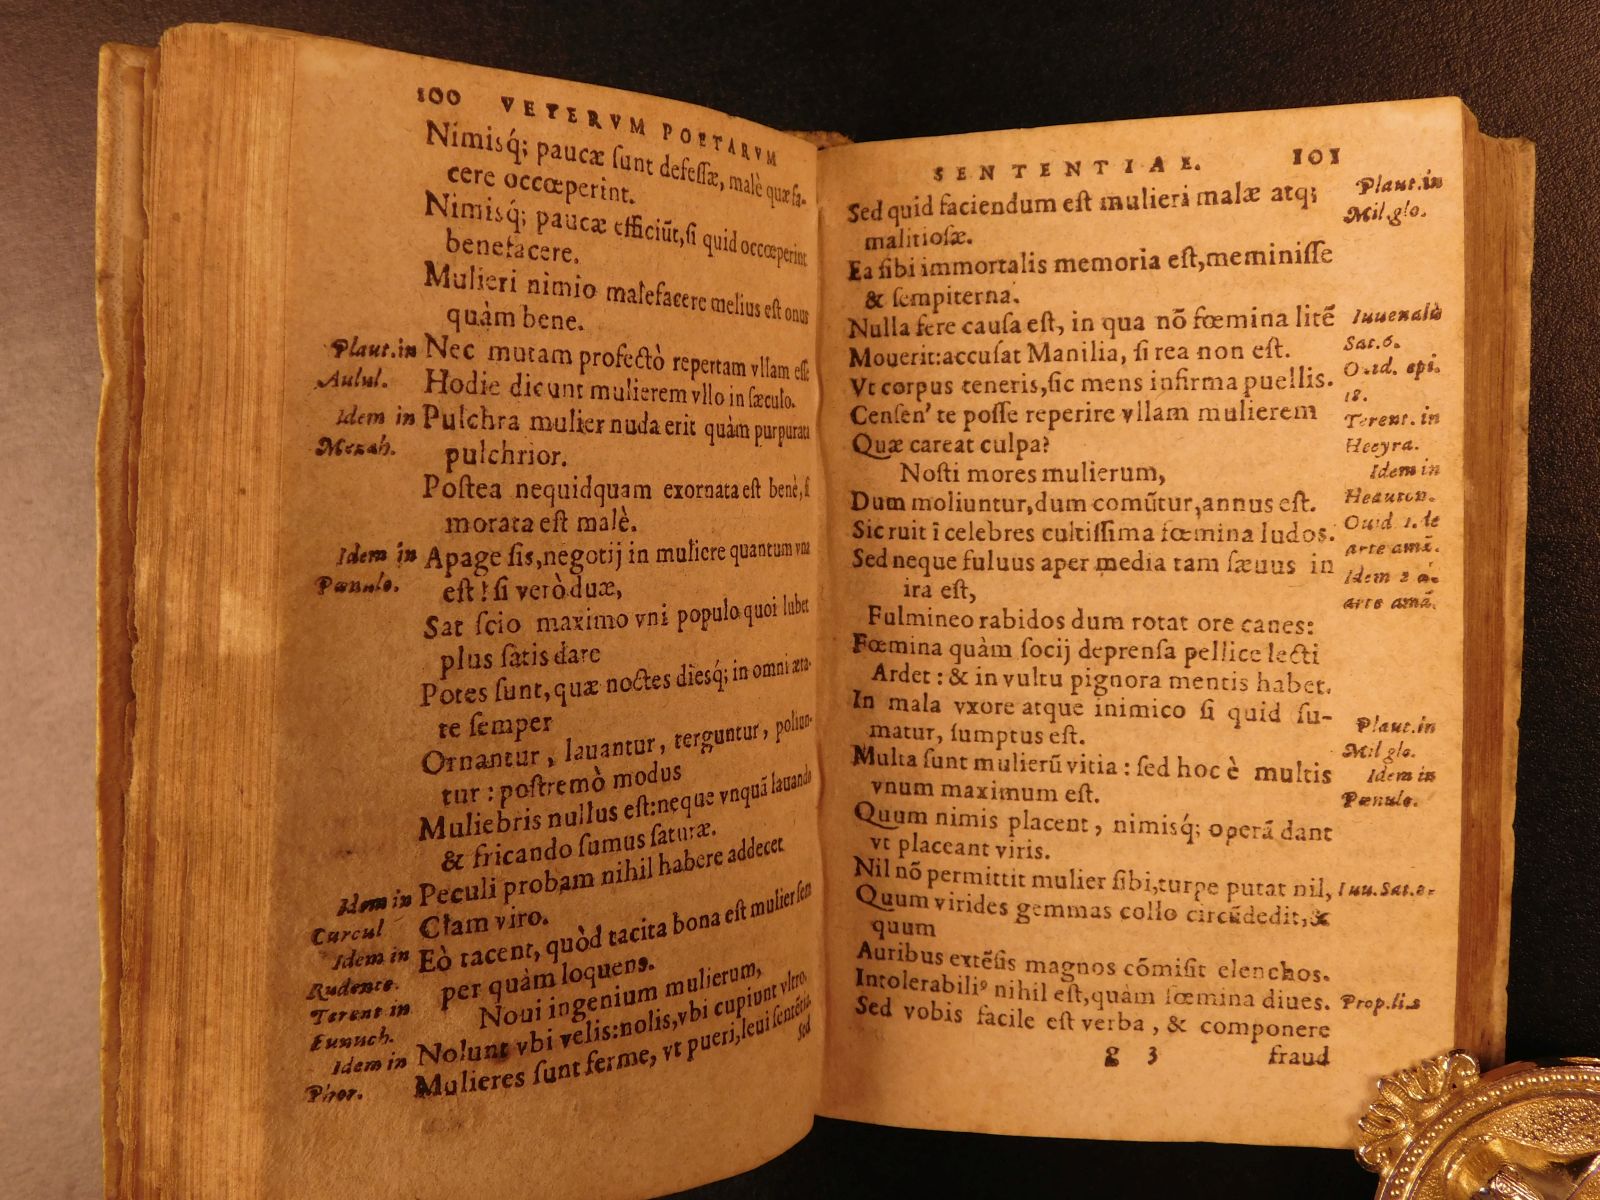 100 VETERVM POETARVM
Nimisq́; paucæ ſunt defeſſæ, malè quæ fa-
cere occœperint.
Nimisq́; paucæ efficiũt, ſi quid occœperint
benefacere.
Mulieri nimio malefacere melius eſt onus
quàm bene.
Plaut. in Nec mutam profectò repertam vllam eſſe
Aulul. Hodie dicunt mulierem vllo in ſæculo.
Idem in Pulchra mulier nuda erit quàm purpurata
Moſtah. pulchrior.
Poſtea nequidquam exornata eſt benè, ſi
morata eſt malè.
Idem in Apage ſis, negotij in muliere quantum vna
Pœnulo. eſt! ſi verò duæ,
Sat ſcio maximo vni populo quoi lubet
plus ſatis dare
Potes ſunt, quæ noctes diesq́; in omni æta-
te ſemper
Ornantur, lauantur, terguntur, poliun-
tur: poſtremò modus
Muliebris nullus eſt: neque vnquã lauando
& fricando ſumus ſaturæ.
Idem in Peculi probam nihil habere addecet
Curcul Clam viro.
Idem in Eò tacent, quòd tacita bona eſt mulier ſem
Rudente. per quàm loquens.
Terent in Noui ingenium mulierum,
Eunuch. Nolunt vbi velis: nolis, vbi cupiunt vltro.
Idem in Mulieres ſunt ferme, vt pueri, leui ſentẽtia.
Phor. Sed
SENTENTIAE. 101
Sed quid faciendum eſt mulieri malæ atq; Plaut. in
malitioſæ. Mil. glo.
Ea ſibi immortalis memoria eſt, meminiſſe
& ſempiterna.
Nulla fere cauſa eſt, in qua nõ fœmina litẽ Iuuenalis
Mouerit: accuſat Manilia, ſi rea non eſt. Sat. 6.
Vt corpus teneris, ſic mens infirma puellis. Ouid. epi.
18.
Cenſen' te poſſe reperire vllam mulierem Terent. in
Quæ careat culpa? Hecyra.
Noſti mores mulierum, Idem in
Dum moliuntur, dum comũtur, annus eſt. Heauton.
Sic ruit ĩ celebres cultiſſima fœmina ludos. Ouid. 1. de
arte amã.
Sed neque fuluus aper media tam ſæuus in Idem 2 de
ira eſt, arte amã.
Fulmineo rabidos dum rotat ore canes:
Fœmina quàm ſocij deprenſa pellice lecti
Ardet: & in vultu pignora mentis habet.
In mala vxore atque inimico ſi quid ſu- Plaut. in
matur, ſumptus eſt. Mil glo.
Multa ſunt mulierũ vitia: ſed hoc è multis Idem in
vnum maximum eſt. Pœnulo.
Quum nimis placent, nimisq́; operã dant
vt placeant viris.
Nil nõ permittit mulier ſibi, turpe putat nil, Iuu. Sat. 6.
Quum virides gemmas collo circũdedit, &
quum
Auribus extẽſis magnos cõmiſit elenchos.
Intolerabiliꝰ nihil eſt, quàm fœmina diues. Prop. li. 2
Sed vobis facile eſt verba, & componere
g 3 fraud